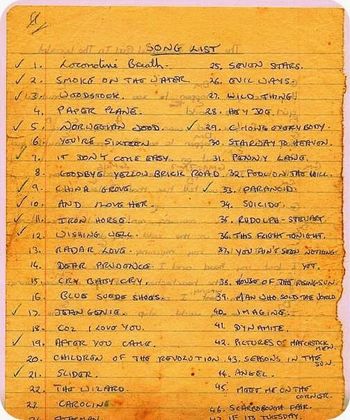 SONG LIST
✓ 1. Locomotive Breath.
✓ 2. SMOKE ON THE WATER
✓ 3. WOODSTOCK.
4. PAPER PLANE.
✓ 5. NORWEGIAN WOOD.
✓ 6. YOU'RE SIXTEEN
✓ 7. IT DON'T COME EASY.
8. GOODBYE YELLOW BRICK ROAD
✓ 9. CHINA GROVE.
✓ 10. AND I LOVE HER
✓ 11. IRON HORSE.
✓ 12. WISHING WELL.
13. RADAR LOVE.
14. DEAR PRUDENCE.
15. CRY BABY CRY.
16. BLUE SUEDE SHOES.
✓ 17. JEAN GENIE.
18. COZ I LOVE YOU.
✓ 19. AFTER YOU CAME.
20. CHILDREN OF THE REVOLUTION
✓ 21. SLIDER.
22. THE WIZARD.
23. CAROLINE
25. SEVEN STARS.
26. EVIL WAYS.
27. WILD THING
28. HEY JOE
✓ 29. C'MON EVERYBODY.
30. STAIRWAY TO HEAVEN.
31. PENNY LANE.
32. FOOL ON THE HILL.
✓ 33. PARANOID.
34. SUICIDE.
35. RUDOLPH - STEWART.
36. THIS FLIGHT TONIGHT.
37. YOU AIN'T SEEN NOTHING
YET.
38. HOUSE OF THE RISING SUN
39. MAN WHO SOLD THE WORLD
40. IMAGINE.
41. DYNAMITE.
42. PICTURES OF MATCHSTICK
MEN.
43. SEASONS IN THE
SUN
44. ANGEL.
45. MEET ME ON THE
CORNER.
46. SCARBOROUGH FAIR.
47. IF IT'S TUESDAY.